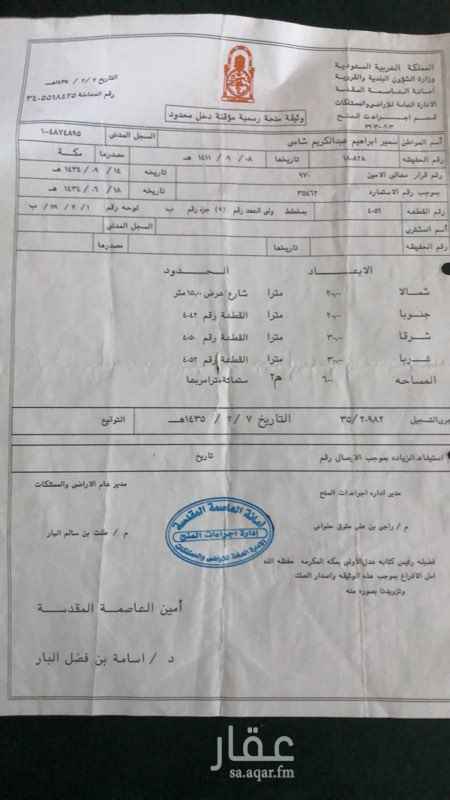 المملكة العربية السعودية
وزارة الشؤون البلدية والقروية
امانة العاصمة المقدسة
الادارة العامة للاراضي والممتلكات
قسم إجراءات المنح
التاريخ ٧ / ٢ / ١٤٣٥هـ
رقم المعاملة
وثيقة منحة رسمية مؤقتة دخل محدود
اسم المواطن سمير ابراهيم عبدالكريم شامي
السجل المدني ١٠٤٨٧٤٨٩٥
رقم الحفيظه ١٨٠٨٢٨ تاريخها ٠٨ / ٩ / ١٤١١ هـ مصدرها مكة
رقم قرار معالي الامين ٩٧٠ تاريخه ١٤ / ٠٩ / ١٤٣٤ هـ
بموجب رقم الاستماره ٣٥٤٦٢ تاريخه ١٨ / ٠٦ / ١٤٣٤ هـ
رقم القطعه ٤٠٥١ بمخطط ولي العهد رقم (٩) جزء رقم ب لوحه رقم
اسم المشتري السجل المدني
رقم الحفيظه تاريخها مصدرها
الابعاد الحدود
شمالا ٢٠,٠٠ مترا شارع عرض ١٥,٠٠ متر
جنوبا ٢٠,٠٠ مترا القطعة رقم ٤٠٤٢
شرقا ٣٠,٠٠ مترا القطعة رقم ٤٠٥٠
غربا ٣٠,٠٠ مترا القطعة رقم ٤٠٥٢
المساحه ٦٠٠ م٢ ستمائة مترا مربعا
جرى التسجيل ٣٥/٢٠٩٨٢ التاريخ ٧ / ٢ / ١٤٣٥هـ التوقيع
استيفاء الزياده بموجب الايصال رقم تاريخ
مدير اداره اجراءات المنح
مدير عام الاراضي والممتلكات
م / راجي بن علي حلواني
م / طلت بن سالم البار
امانة العاصمة المقدسة
إدارة اجراءات المنح
الادارة العامة للاراضي والممتلكات
فضيله رئيس كتابه عدل الأولى بمكه المكرمه حفظه الله
امل الافراغ بموجب هذه الوثيقه واصدار الصك
وتزويدنا بصوره منه
أمين العاصمة المقدسة
د / أسامة بن فضل البار
عقار
sa.aqar.fm